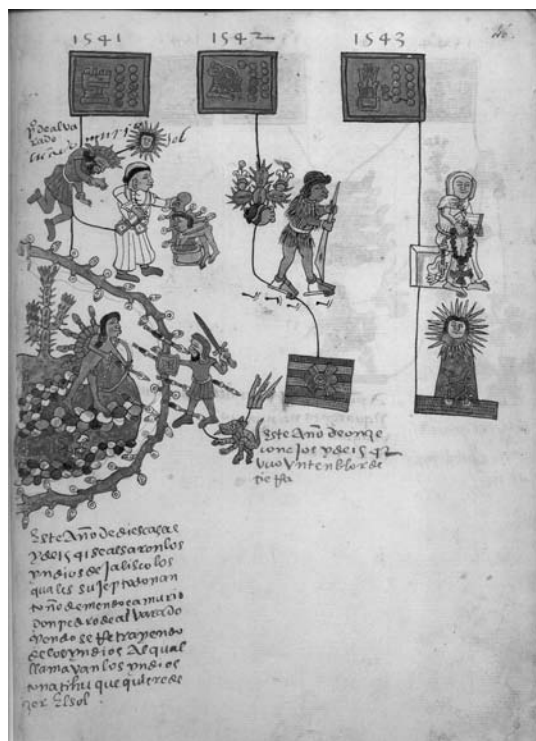 1541 1542 1543
46.
pº de alva
rado
sol
Este Año de onze
conejos y de 1542
uvo yn tenblor de
tierra
Este Año de diescasas
y de 1541 se alsaron los
yndios de jalisco los
quales sujepto don an
toño de mendoca murio
don pedro de alvarado
yendo se retrayendo
de los yndios Al qual
llamavan los yndios
tonatihu que quiere de
zir El sol